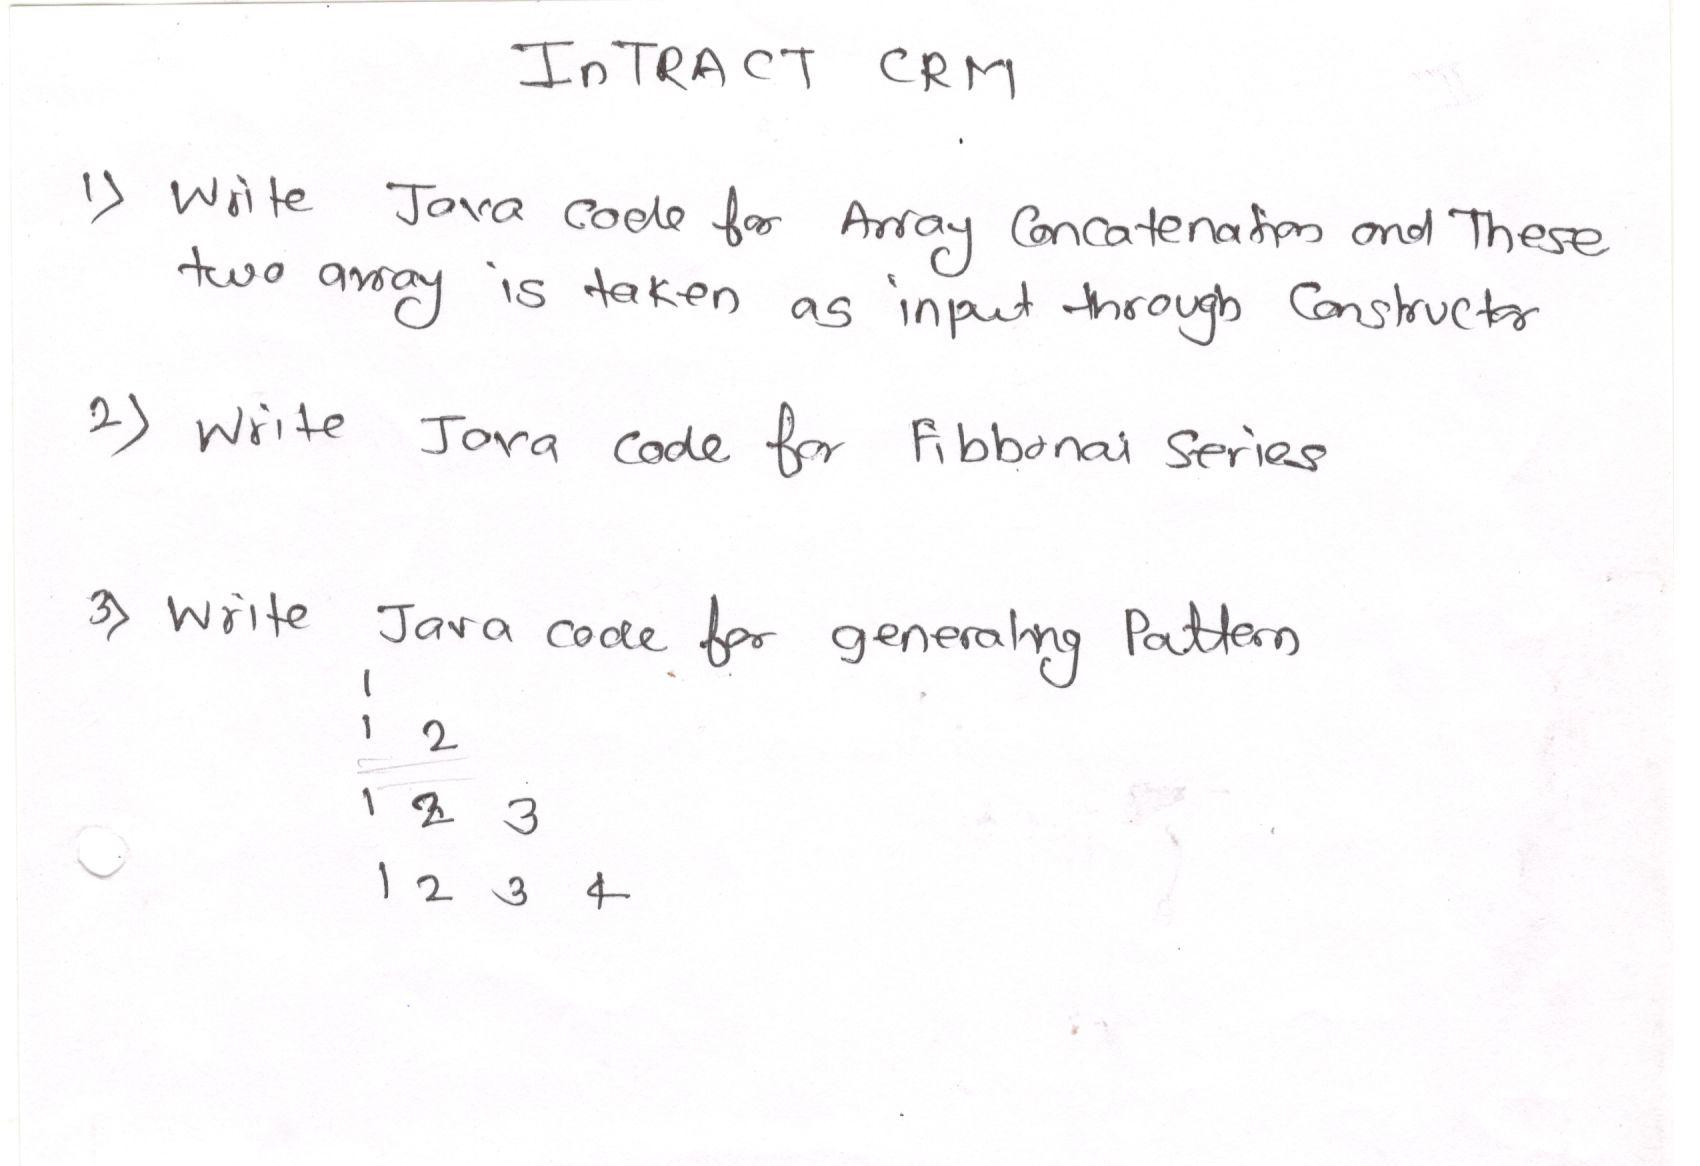 InTRACT CRM
1) Write Java code for Array Concatenation and These
two array is taken as input through Constructor
2) Write Java code for Fibbonai Series
3) Write Java code for generating Pattern
1
1 2
1 2 3
1 2 3 4